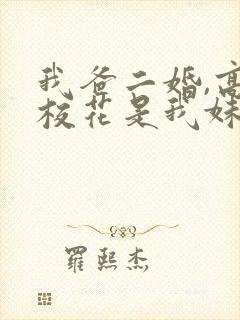 我爸二婚,高
校花是我妹
羅熙杰